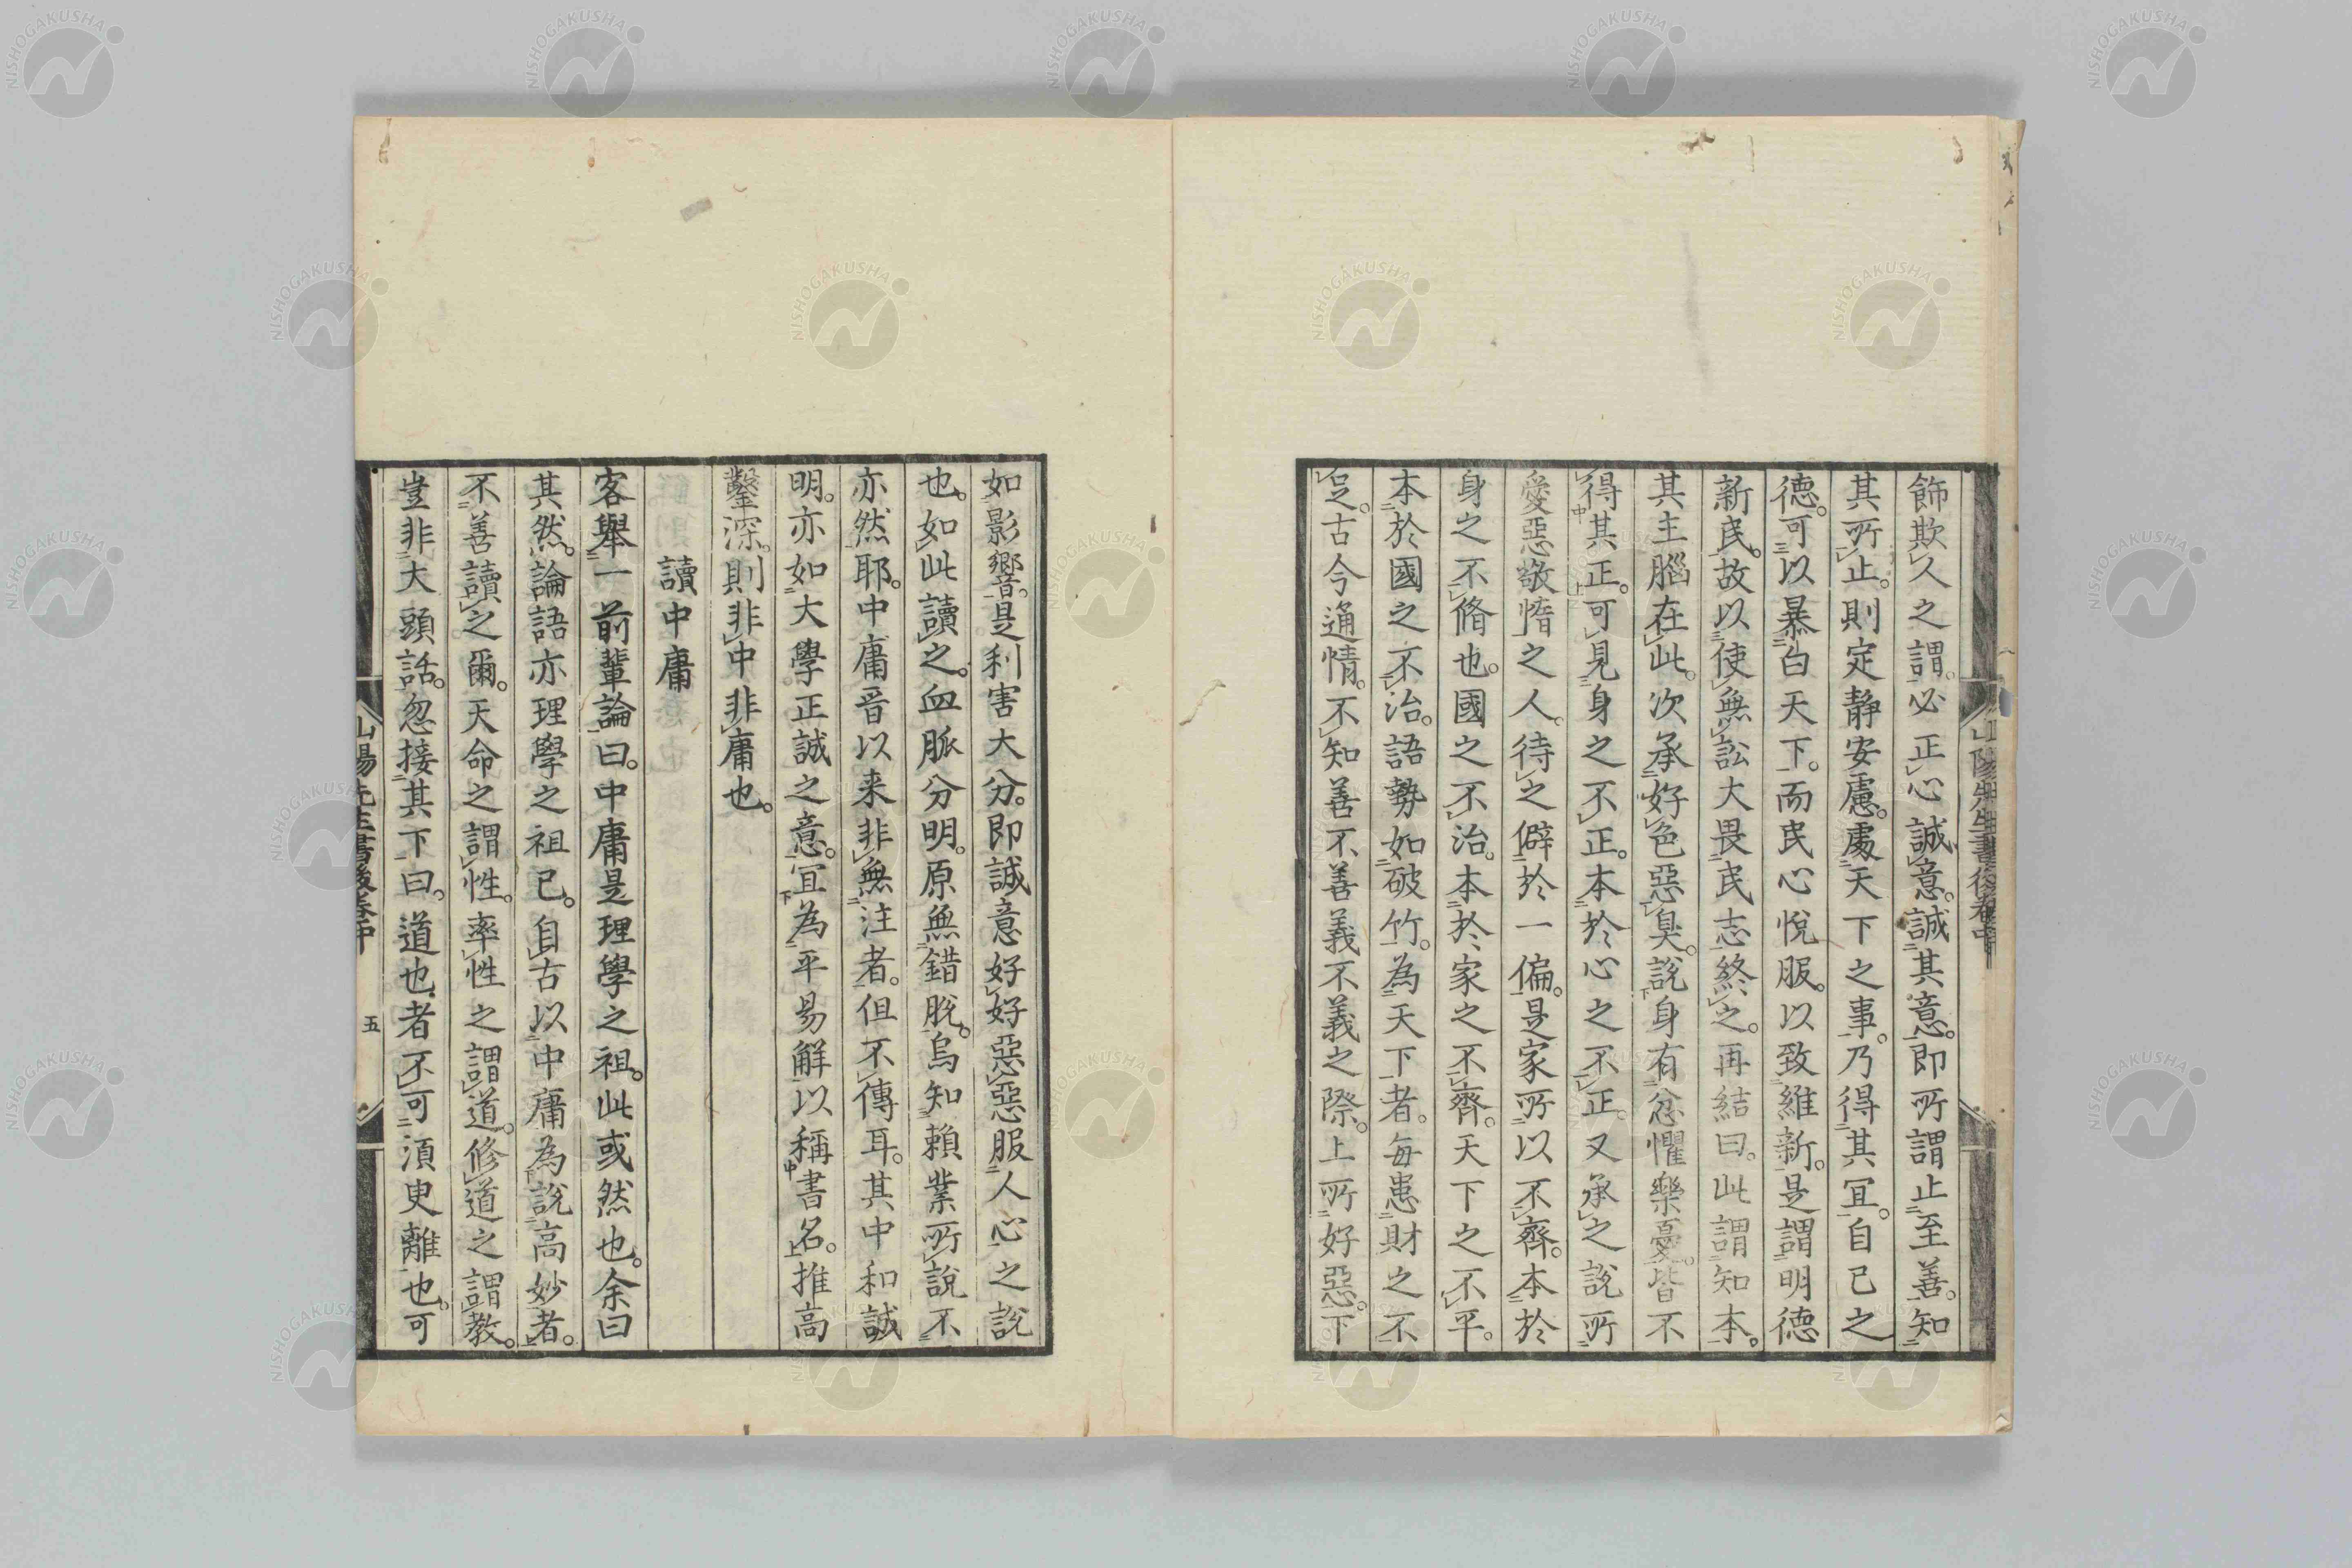 飾欺人之謂。必正心誠意。誠其意。即所謂止至善。知
其所止。則定静安慮。處天下之事。乃得其冝。自己之
德。可以暴白天下。而民心悦服。以致維新。是謂明德
新民。故以使無訟大畏民志終之。再結曰。此謂知本。
其主腦在此。次承好色惡臭。說身有忿懼樂憂。皆不
得其正。可見身之不正。本於心之不正。又承之説所
愛惡敬惰之人。待之僻於一偏。是家所以不齊。本於
身之不脩也。國之不治。本於家之不齊。天下之不平。
本於國之不治。語勢如破竹。為天下者。每患財之不
足。古今通情。不知善不善義不義之際。上所好惡。下
山陽先生書後卷中
如影響。是利害大分。即誠意好好惡惡服人心之説
也。如此讀之。血脈分明。原無錯脫。烏知賴業所說不
亦然耶。中庸晉以来非無注者。但不傳耳。其中和誠
明。亦如大學正誠之意。宜為平易解以稱書名。推高
鑿深。則非中非庸也。
讀中庸
客舉一前輩論曰。中庸是理學之祖。此或然也。余曰
其然。論語亦理學之祖已。自古以中庸為說高妙者。
不善讀之爾。天命之謂性。率性之謂道。修道之謂教。
豈非大頭話。忽接其下曰。道也者不可須臾離也。可
山陽先生書後卷中 五
NISHOGAKUSHA